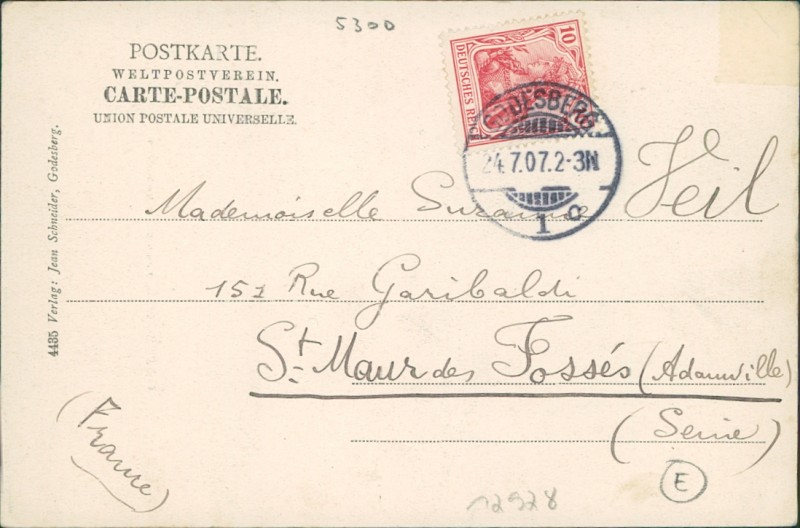 5300
POSTKARTE.
WELTPOSTVEREIN.
CARTE-POSTALE.
UNION POSTALE UNIVERSELLE.
10
DEUTSCHES REICH
GODESBERG
24.7.07.2-3N
1 c
Mademoiselle Suzanne Veil
151 Rue Garibaldi
St Maur des Fossés (Adamville)
(Seine)
(France)
4435 Verlag: Jean Schneider, Godesberg.
12928
E